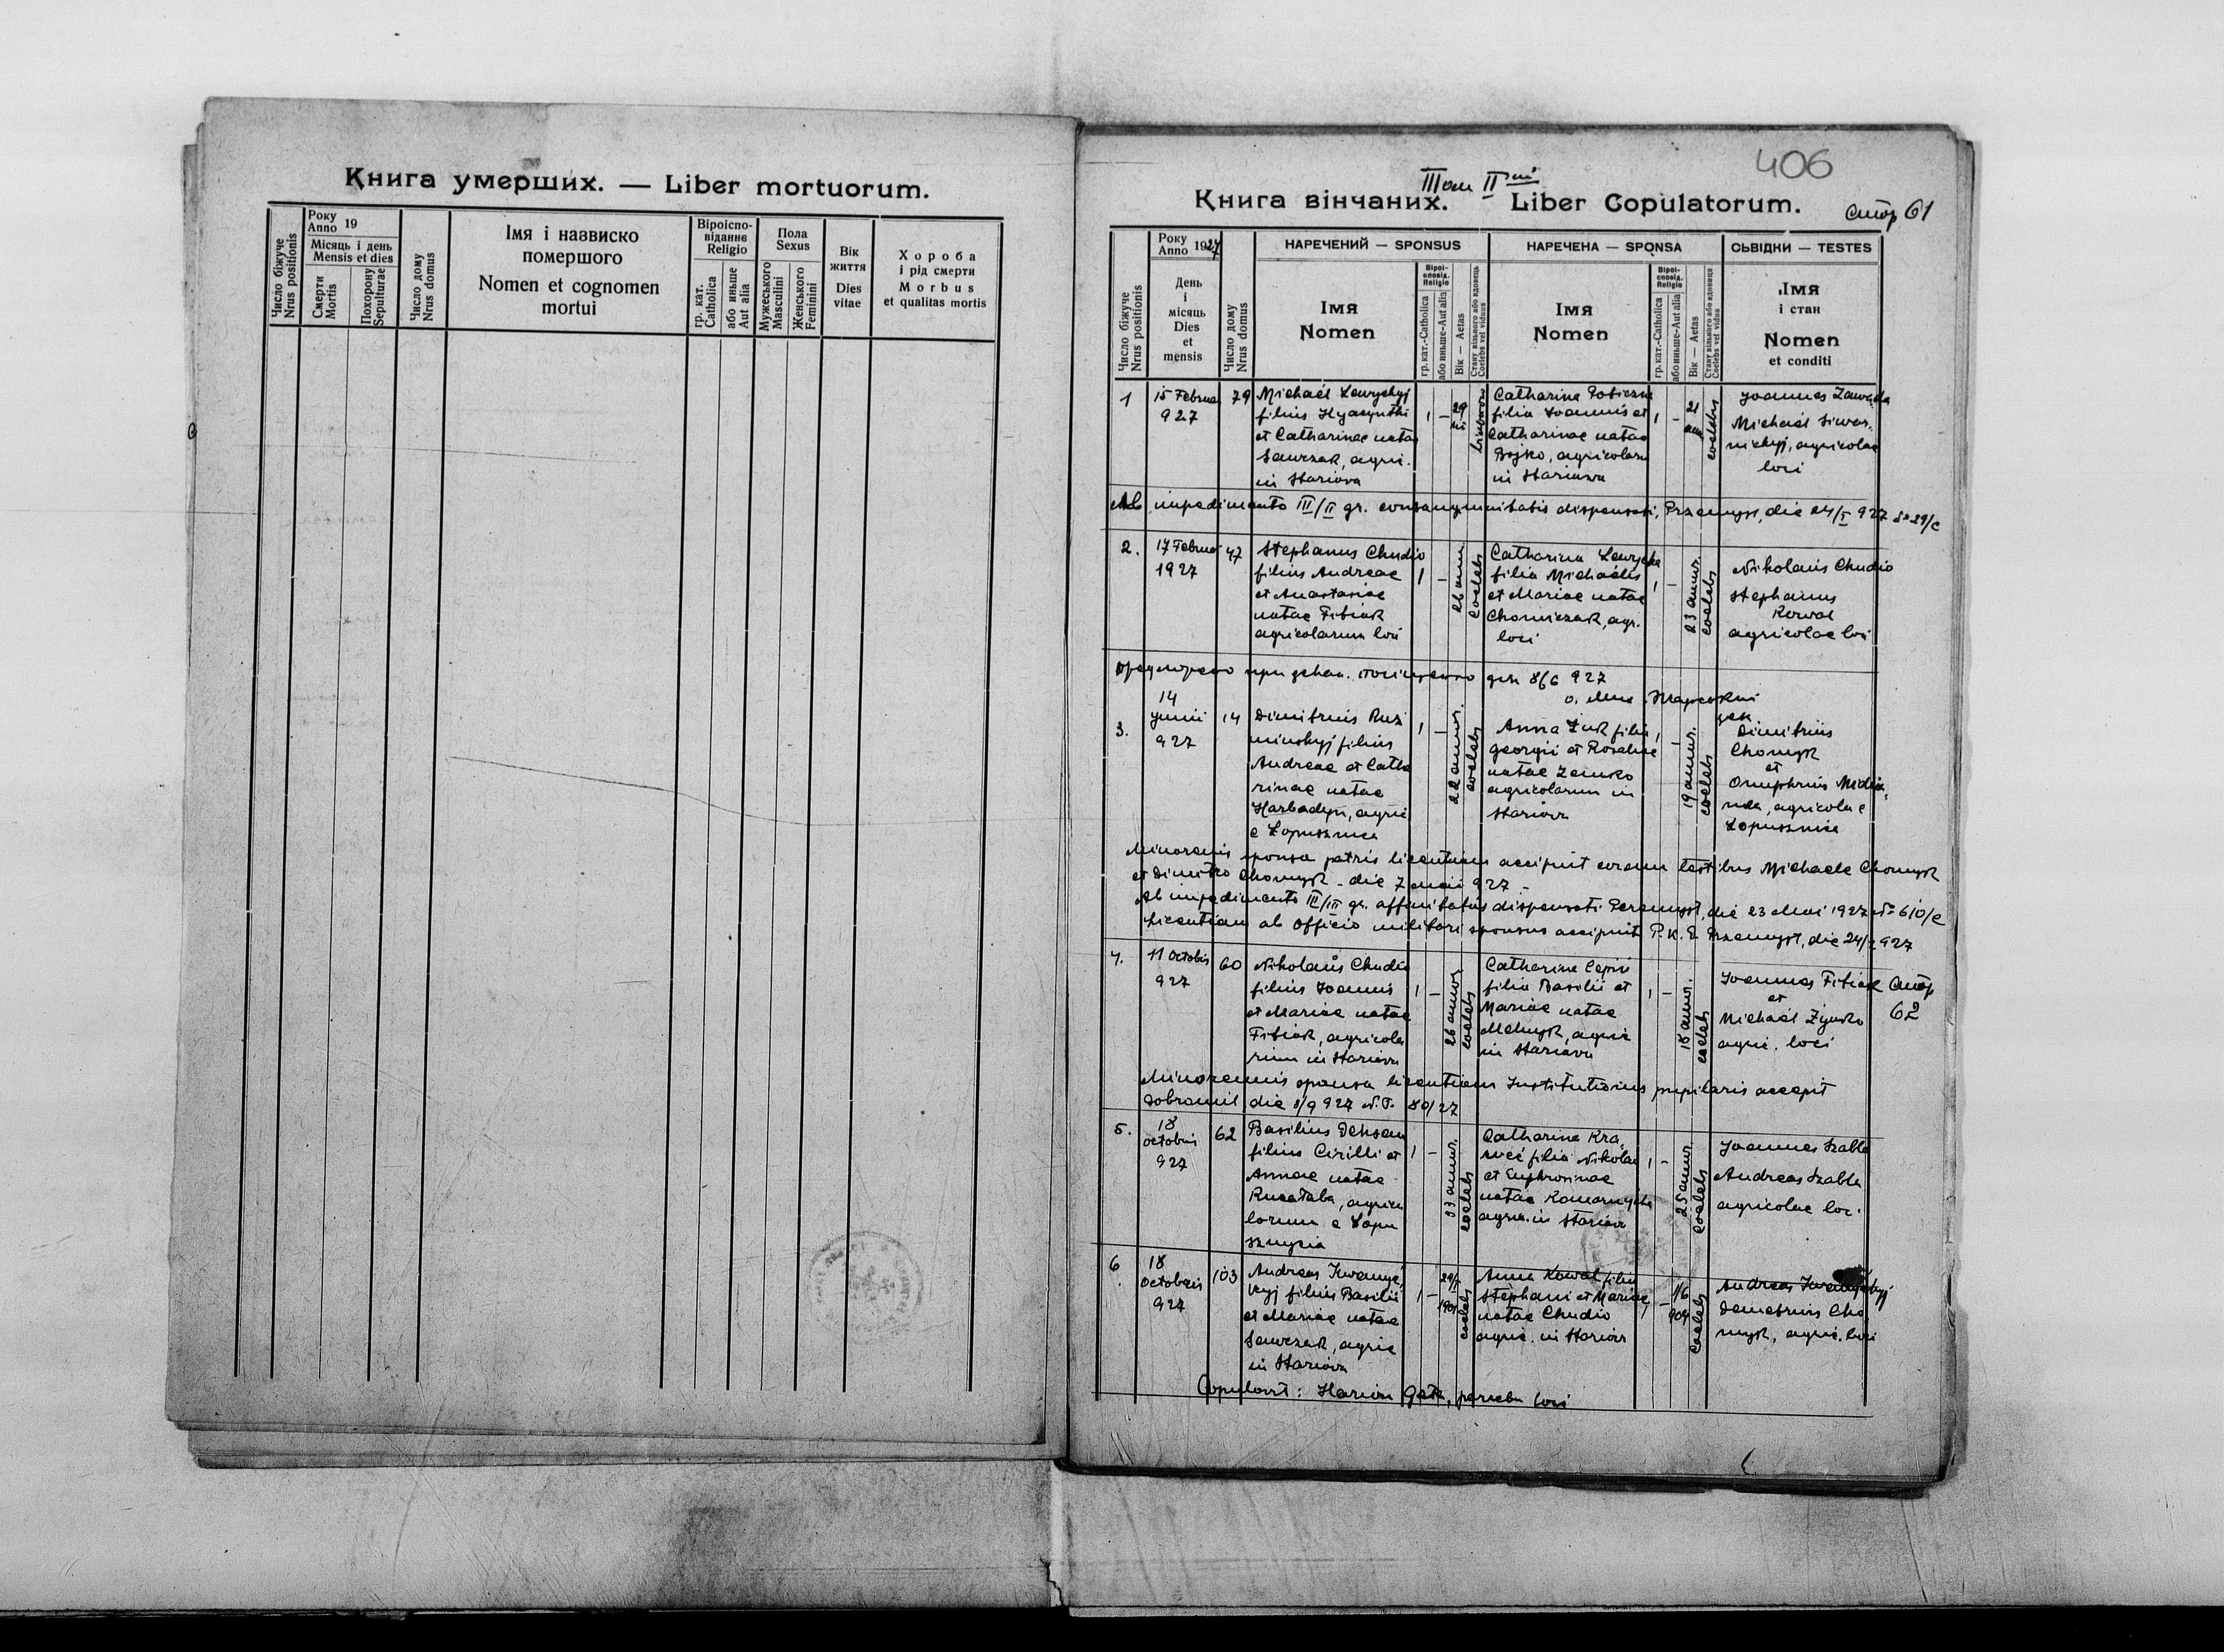 Книга умерших. — Liber mortuorum.
Число біжуче
Nrus positionis
Року
Anno 19
Місяць і день
Mensis et dies
Смерти
Mortis
Похорону
Sepulturae
Число дому
Nrus domus
Імя і назвиско
помершого
Nomen et cognomen
mortui
Віроіспо-
відання
Religio
гр. кат.
Catholica
або иньше
Aut alia
Пола
Sexus
Мужеського
Masculini
Женського
Feminini
Вік
життя
Dies
vitae
Хороба
і рід смерти
Morbus
et qualitas mortis
406
Том II
Книга вінчаних. Liber Copulatorum.
стор 61
Число біжуче
Nrus positionis
Року
Anno 1927
День
і
місяць
Dies
et
mensis
Число дому
Nrus domus
НАРЕЧЕНИЙ — SPONSUS
Імя
Nomen
Віроі-
сповід.
Religio
гр. кат.-Catholica
або иньше-Aut alia
Вік — Aetas
Стану вільного або вдовець
Coelebs vel viduus
НАРЕЧЕНА — SPONSA
Імя
Nomen
Віроі-
сповід.
Religio
гр. кат.-Catholica
або иньше-Aut alia
Вік — Aetas
Стану вільного або вдовиця
Coelebs vel vidua
СЬВІДКИ — TESTES
Імя
і стан
Nomen
et conditi
1
15 Februa
927
79
Michaël Lewyckyj
filius Hyacynthi
et Catharinae natae
Sawczak, agri.
in Stariava
1 — 29
Catharina
filia Joannis et
Catharinae natae
Bojko, agricolarum
in Stariawa
1 — 21
coelebs
Joannes Zawada
Michaël
agricolae
loci
Ab impedimento III/II gr. consanguinitatis dispensati, Przemyśl, die 24/I 927 № 29/c
2.
17 Februa
1927
47
Stephanus Chudio
filius Andreae
et Anastasiae
natae Fitiak
agricolarum loci
1 —
26 ann
coelebs
Catharina Lewycka
filia Michaëlis
et Mariae natae
Chomiczak, agr.
loci
1 —
23 annor.
coelebs
Nikolaus Chudio
Stephanus
Kowal
agricolae loci
при декан. дня 8/6 927
3.
14
Junii
927
14
Dimitrius
filius
Andreae et Catha
rinae natae
agric
e Łopusznica
1 —
22 annor.
coelebs
Anna Żuk filia
Georgii et Rosaliae
natae Zenko
agricolarum in
Stariava
1 —
19 annor.
coelebs
Dimitrius
Chomyk
et
Onuphrius
agricolae
Łopusznica
Minorennis sponsa patris licentiam accipuit coram testibus Michaele Chomyk
et Dimitro Chomyk - die 7 927 -
Ab impedimento III/III gr. affinitatis dispensati Peremyśl, die 23 Mai 1927 № 610/c
Licentiam ab officio militari sponsus accipuit P.K.U. Przemyśl, die 927
4.
11 Octobris
927
60
Nikolaus Chudio
filius Joannis
et Mariae natae
Fitiak, agricola
rum in Stariava
1 —
26 annor
coelebs
Catharina
filia Basilii et
Mariae natae
Melnyk, agric
in Stariava
1 —
18 annor.
coelebs
Joannes Fitiak
et
Michaël Zynko
agric. loci
стор
62
Minorennis sponsa licentiam Institutionis pupilaris accepit
Dobromil die 8/9 927 80/27
5.
18
octobris
927
62
Basilius
filius Cirilli et
Annae natae
agrico
larum e Łopu
sznycia
1 —
33 annor.
coelebs
Catharina Kra
weć filia Nikolai
et Euphrosinae
natae Komarnycka
agric. in Stariava
1 —
25 annor.
coelebs
Joannes Szabla
Andreas Szabla
agricolae loc.
6
18
Octobris
927
103
Andreas
filius Basilii
et Mariae natae
Sawczak, agric
in Stariava
1 —
1901
coelebs
Anna Kowal filia
Stephani et Mariae
natae Chudio
agric. in Stariava
1 —
1/6
904
coelebs
Andreas
Demetrius Cho
myk, agric. loci
Copulavit: parochus loci